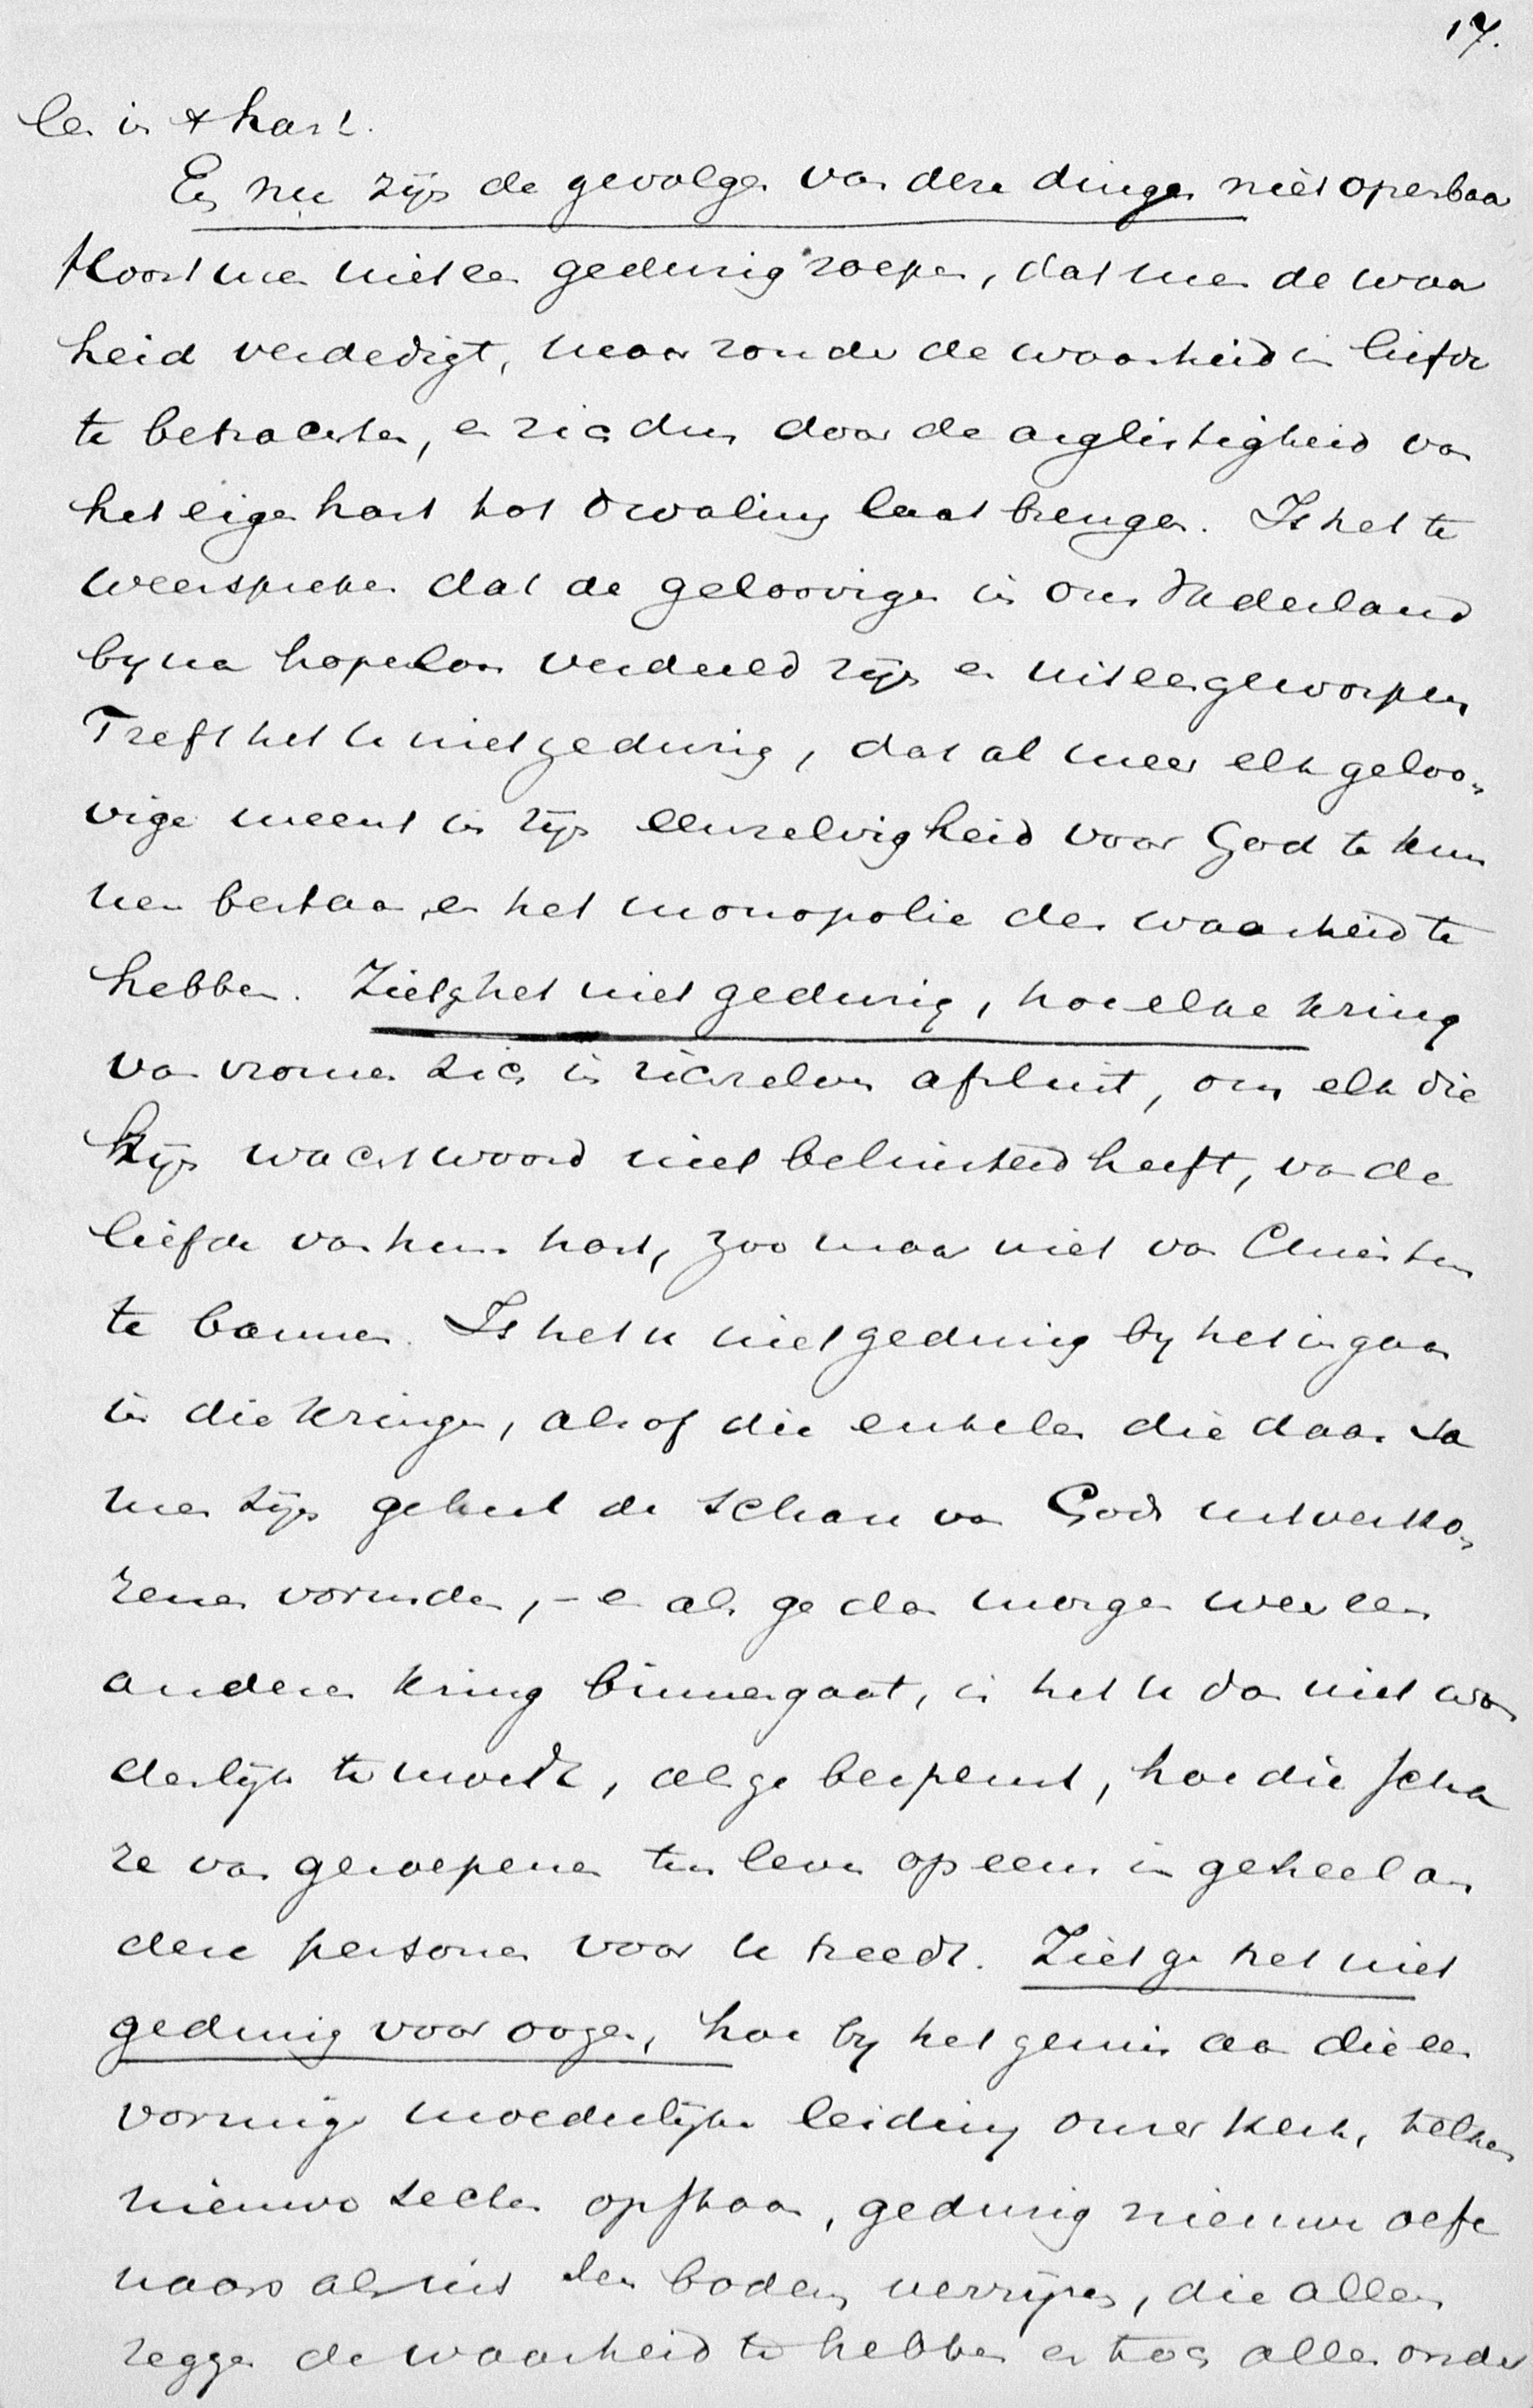 17.
len in 't hart.
En nu zijn de gevolgen van deze dingen niet openbaar
Hoort men niet een gedurig roepen, dat men de waar
heid verdedigt, maar zonder de waarheid in liefde
te betrachten, en zich dus door de arglistigheid van
het eigen hart tot dwaling laat brengen. Is het te
weerspreken dat de geloovigen in ons Vaderland
byna hopeloos verdeeld zijn en uiteengeworpen
Treft het u niet gedurig, dat al meer elk geloo-
vige meent in zijn eenzelvigheid voor God te kun
nen bestaan, en het monopolie der waarheid te
hebben. Ziet ge het niet gedurig, hoe elke kring
van vromen zich in zichzelven afsluit, om elk die
zijn wachtwoord niet beluisterd heeft, van de
liefde van hun hart, zoo maar niet van Christus
te bannen. Is het u niet gedurig by het ingaan
in die kringen, alsof die enkelen die daar sa
men zijn geheel de schare van Gods uitverko-
zenen vormden, – en als ge dan morgen weer een
anderen kring binnengaat, is het u dan niet won
derlijk te moede, als ge bespeurt, hoe die scha
re van geroepenen ten leven opeens in geheel an
dere personen voor u treedt. Ziet ge het niet
gedurig voor oogen, hoe by het gemis aan die een
vormige moederlijke leiding onzer kerk, telkens
nieuwe secten opstaan, gedurig nieuwe oefe
naars als uit den bodem verrijzen, die allen
zeggen de waarheid te hebben en toch allen onder